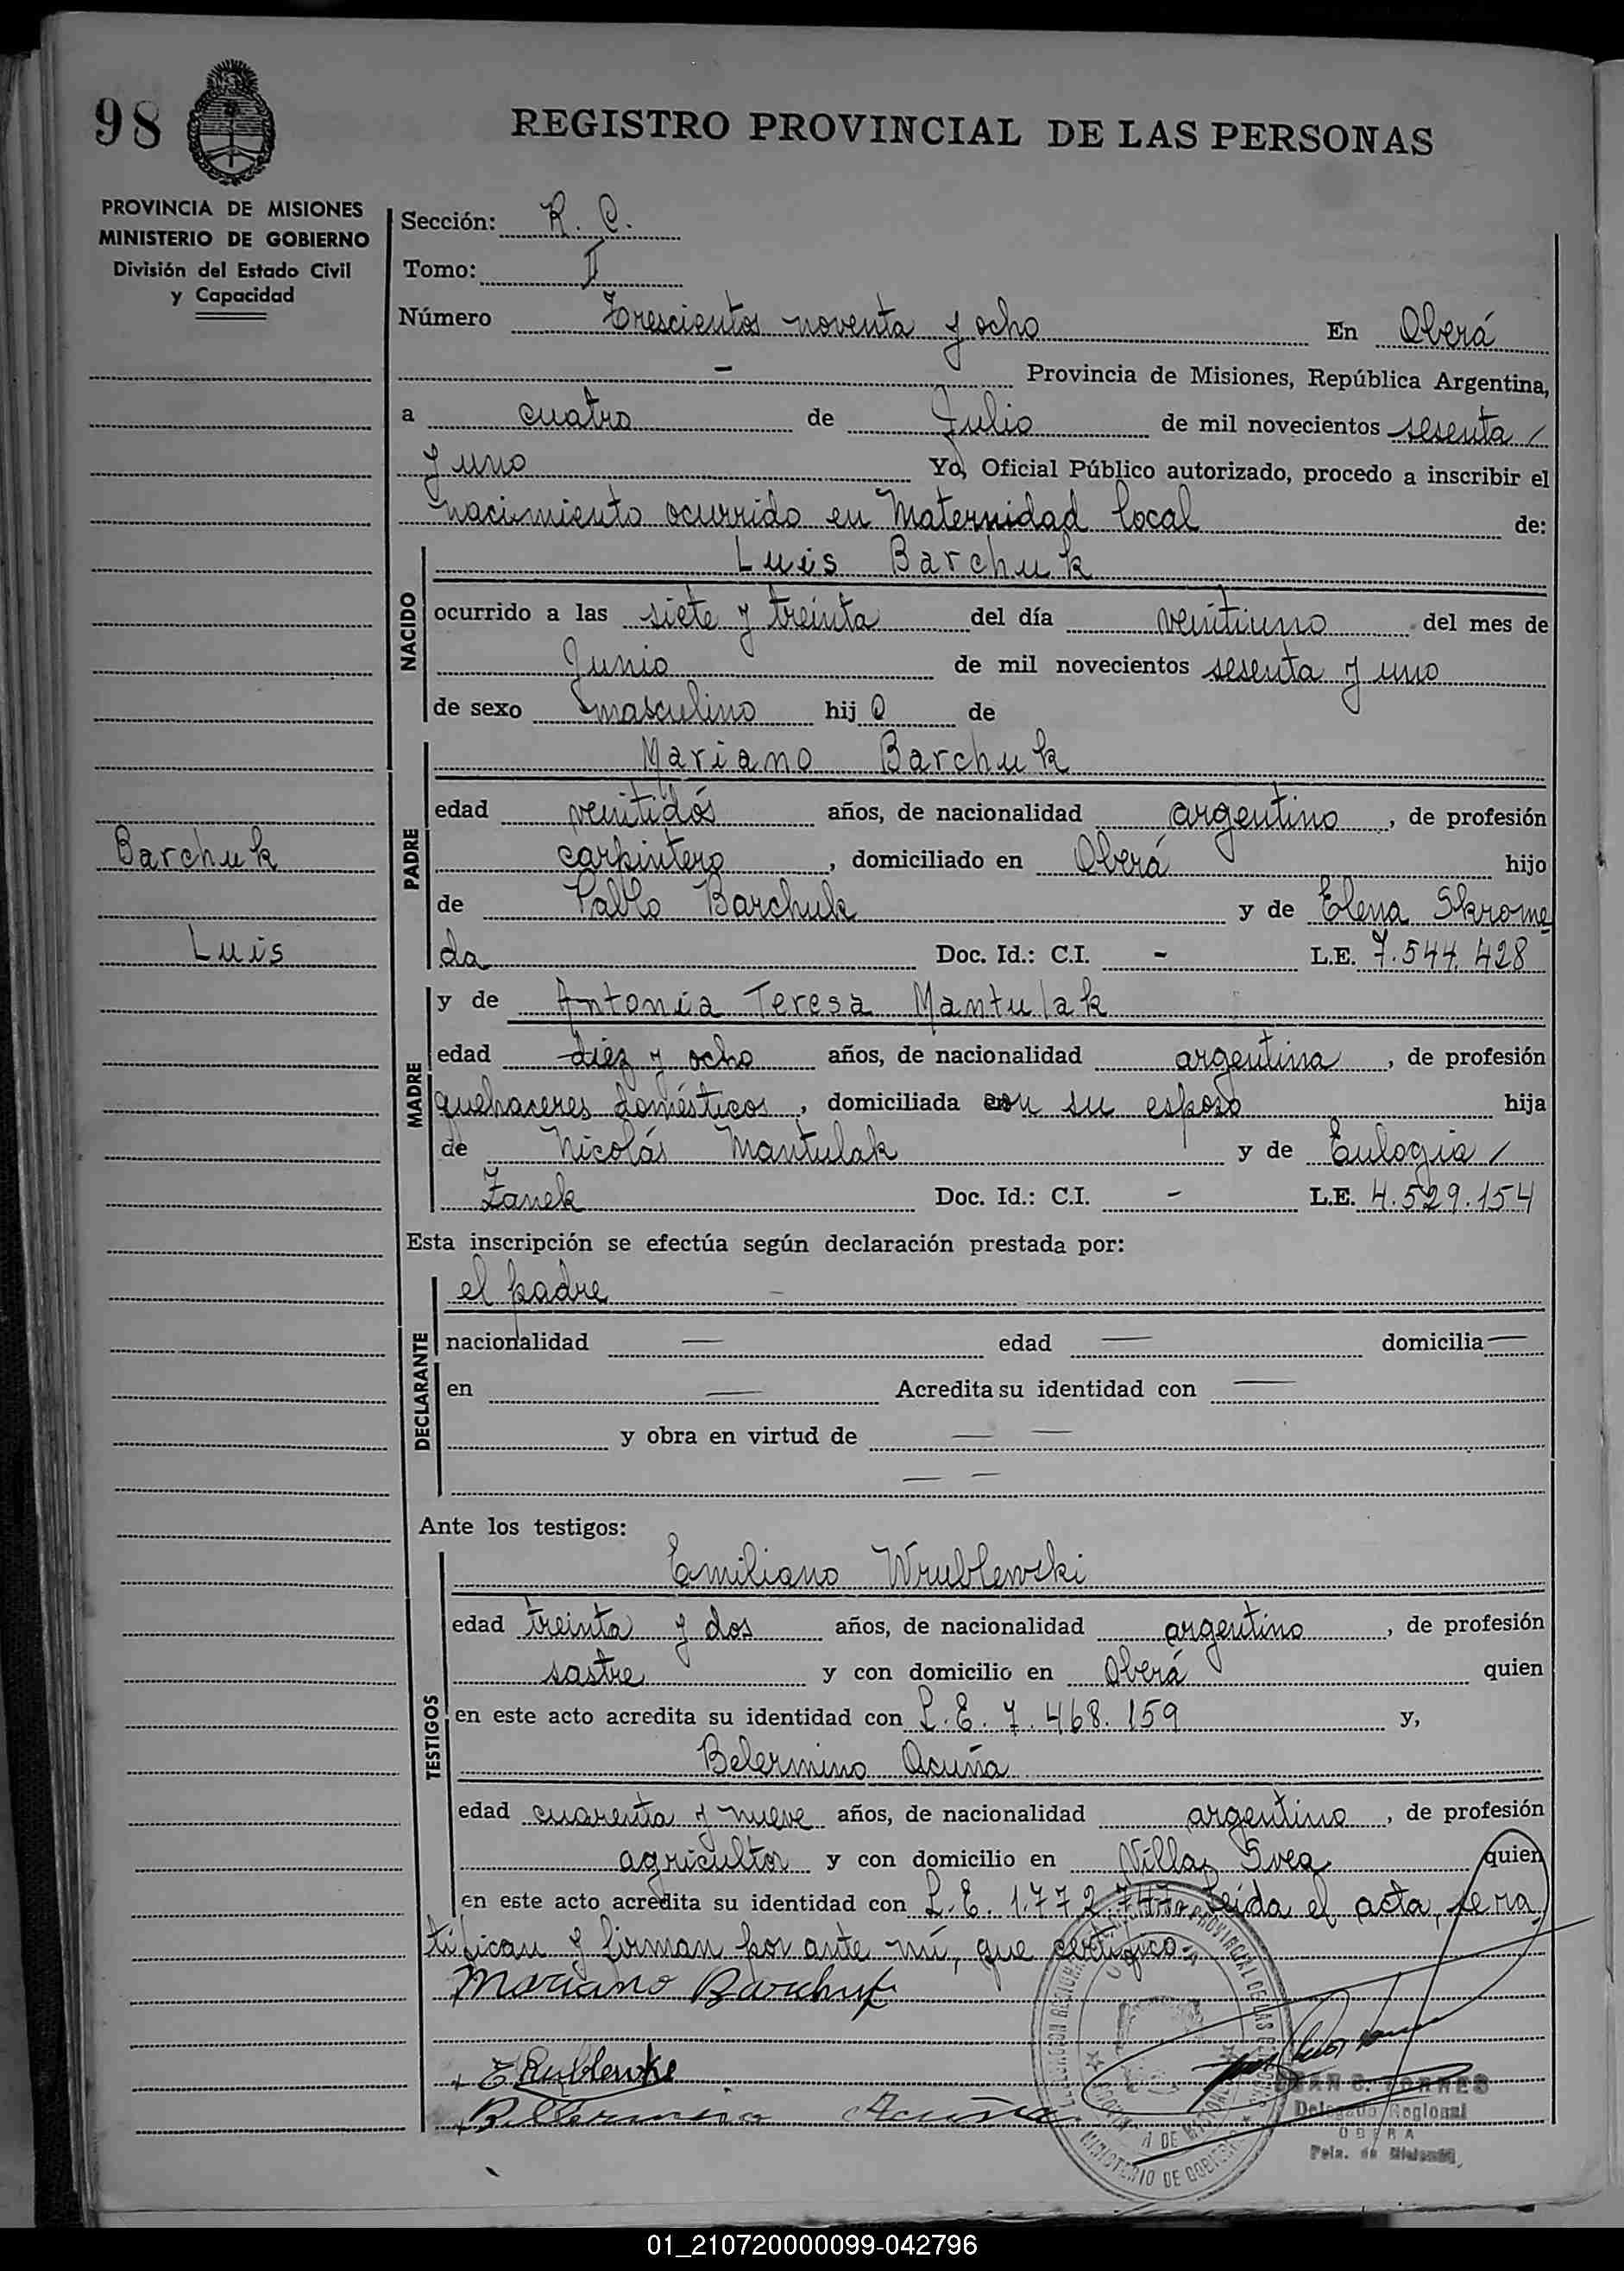 98
REGISTRO PROVINCIAL DE LAS PERSONAS
PROVINCIA DE MISIONES
MINISTERIO DE GOBIERNO
División del Estado Civil
y Capacidad
Sección: R. C.
Tomo: II
Número Trescientos noventa y ocho En Oberá
- Provincia de Misiones, República Argentina,
a cuatro de Julio de mil novecientos sesenta /
y uno Yo, Oficial Público autorizado, procedo a inscribir el
nacimiento ocurrido en Maternidad local de:
NACIDO
Luis Barchuk
ocurrido a las siete y treinta del día veintiuno del mes de
Junio de mil novecientos sesenta y uno
de sexo masculino hijo de
PADRE
Mariano Barchuk
edad veintidós años, de nacionalidad argentino, de profesión
Barchuk
carpintero, domiciliado en Oberá hijo
de Pablo Barchuk y de Elena Skrome
Luis
da Doc. Id.: C.I. - L.E. 7.544.428
MADRE
y de Antonia Teresa Mantulak
edad diez y ocho años, de nacionalidad argentina, de profesión
quehaceres domésticos, domiciliada con su esposo hija
de Nicolás Mantulak y de Eulogia /
Zanek Doc. Id.: C.I. - L.E. 4.529.154
Esta inscripción se efectúa según declaración prestada por:
DECLARANTE
el padre -
nacionalidad — edad — domicilia —
en — Acredita su identidad con —
y obra en virtud de — —
— —
Ante los testigos:
TESTIGOS
Emiliano Wrublewski
edad treinta y dos años, de nacionalidad argentino, de profesión
sastre y con domicilio en Oberá quien
en este acto acredita su identidad con L.E. 7.468.159 y,
Belermino Acuña
edad cuarenta y nueve años, de nacionalidad argentino, de profesión
agricultor y con domicilio en Villa Svea quien
en este acto acredita su identidad con L.E. 1.772.747.- Leida el acta, se ra
tifican y firman por ante mí, que certifico.-
Mariano Barchuk
E Rublewske
Beltermino Acuña
PROVINCIAL DE LAS
MINISTERIO DE GOBIERNO
TORRES
Delegado Regional
OBERA
Pcia. de Misiones
01_210720000099-042796